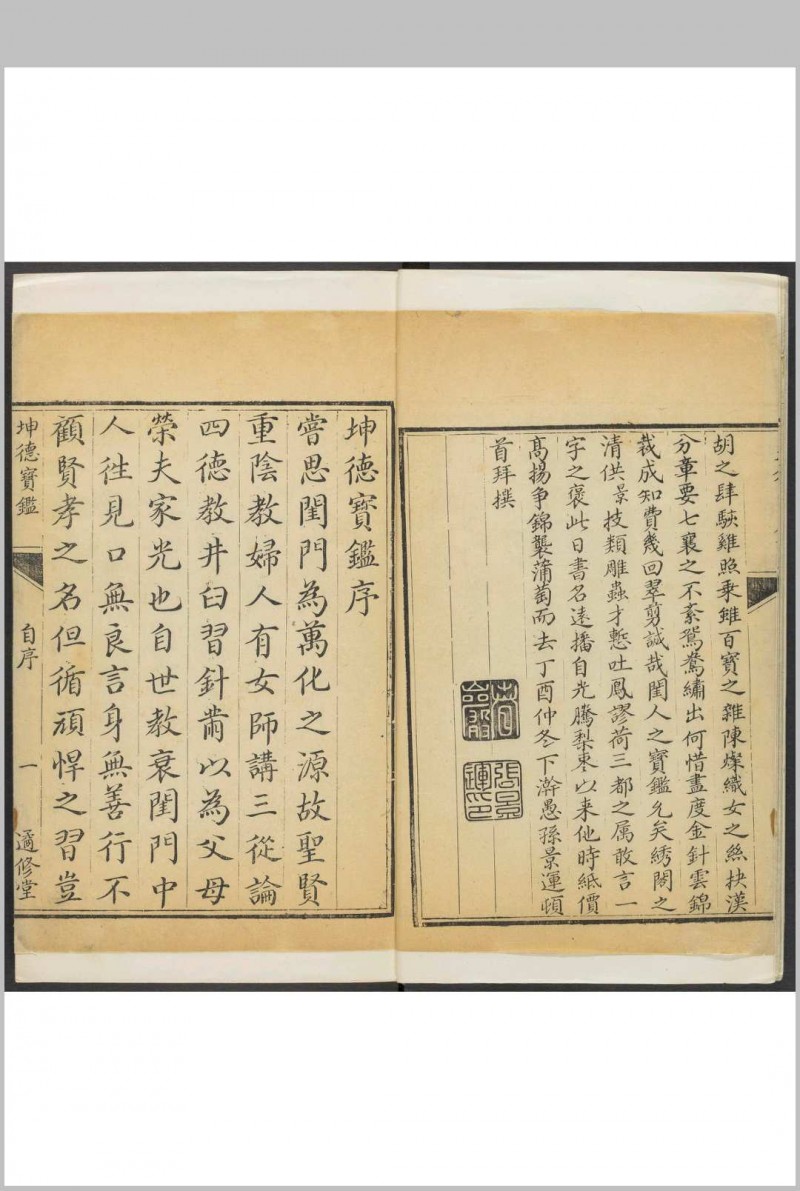 胡之肆駛雞照乘雖百寶之雜陳燦織女之絲抉漢
分章要七襄之不紊鴛鴦繡出何惜盡度金針雲錦
裁成知費幾回翠剪誠哉閨人之寶鑑允矣綉閣之
清供景技類雕蟲才慙吐鳳謬荷三都之属敢言一
字之褒此日書名遠播自光騰梨枣以来他時紙價
高揚争錦製蒲萄而去丁酉仲冬下澣愚孫景運頓
首拜撰
坤德寶鑑序
嘗思閨門為萬化之源故聖賢
重陰教婦人有女師講三從論
四德教井臼習針黹以為父母
榮夫家光也自世教衰閨門中
人徃見口無良言身無善行不
顧賢孝之名但循頑悍之習豈
坤德寶鑑
自序
一
適修堂